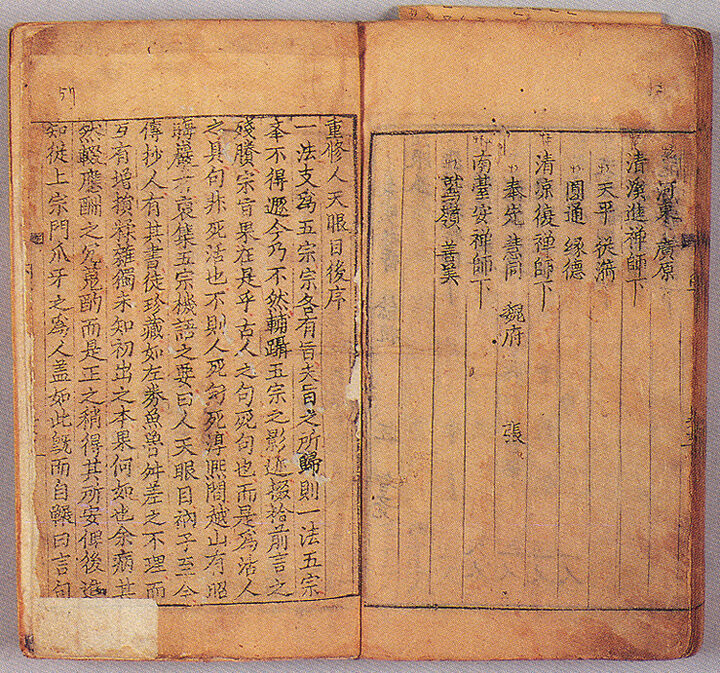 河東廣原
清溪進禪師下
天平從漪
圓通緣德
清涼復禪師下
奉先慧同 魏府 張
南臺安禪師下
鷲嶺善美
57
重修人天眼目後序
一法支爲五宗宗各有旨夫旨之所歸則一法五宗
奉不得遯今乃不然輔躡五宗之影迹掇拾前言之
殘賸宗旨果在是乎古人之句死句也而是爲活人
之具句非死活也不則人死句死淳熙間越山有昭
晦巖者裒集五宗機語之要曰人天眼目衲子至今
傳抄人有其書徒珍藏如左券魚魯舛差之不理而
互有增損雜獨未知初出之本果何如也余病其
然輟應酬之冗蒐酌而是正之稍得其所安俾後進
知從上宗門爪牙之爲人盖如此旣而自曰言句